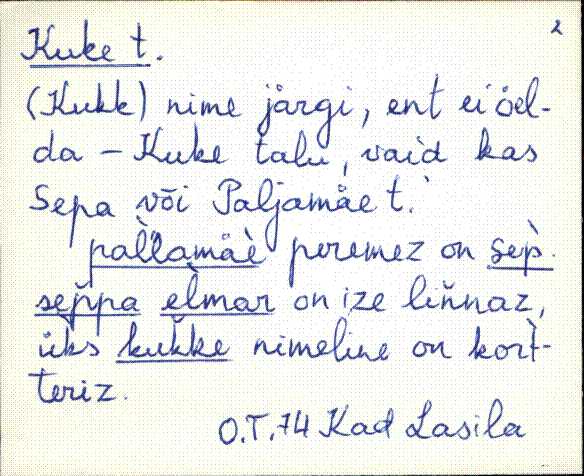 2
Kuke t.
(Kukk) nime järgi, ent ei öel-
da – Kuke talu, vaid kas
Sepa või Paljamäe t.
pal̆lamäè peremez on sep̀.
sep̆pa èlmar on ize lin̆naz,
üks kuk̆ke nimeline on kort̀-
teriz.
O.T. 74 Kad Lasila